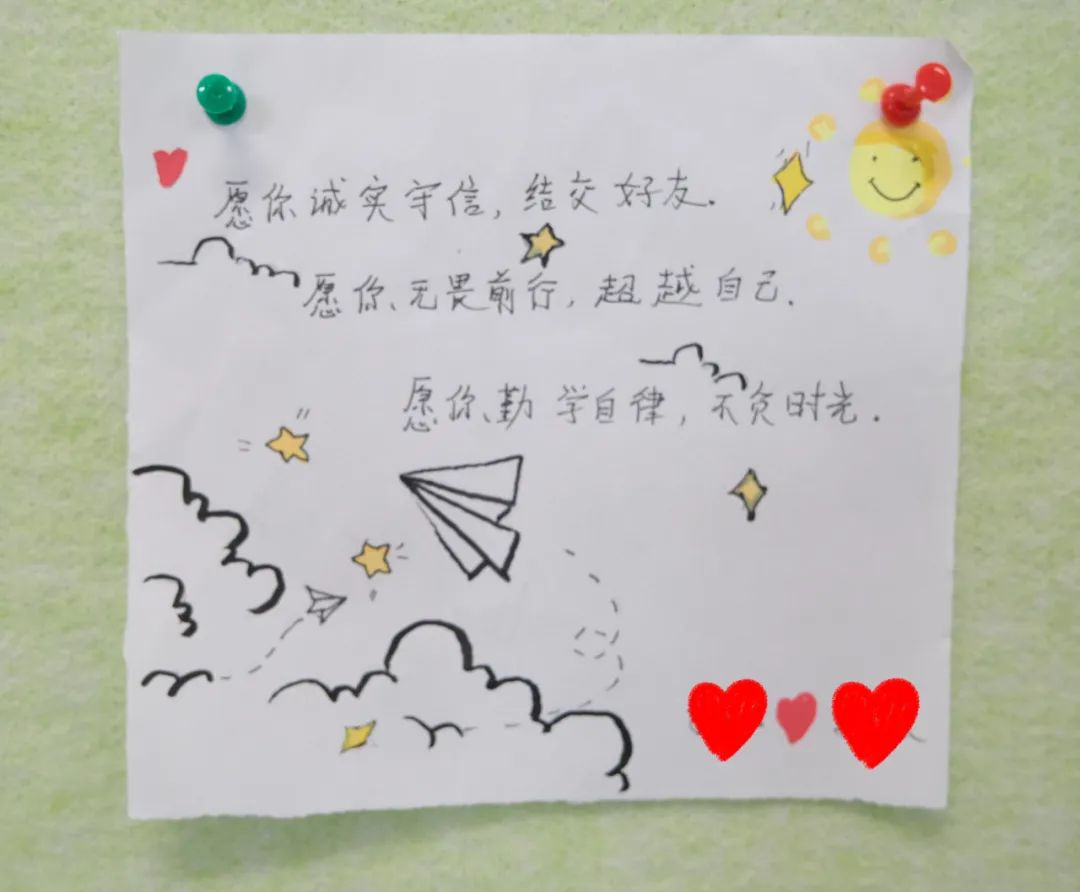 愿你诚实守信，结交好友.
愿你、无畏前行，超越自己.
愿你、勤学自律，不负时光.